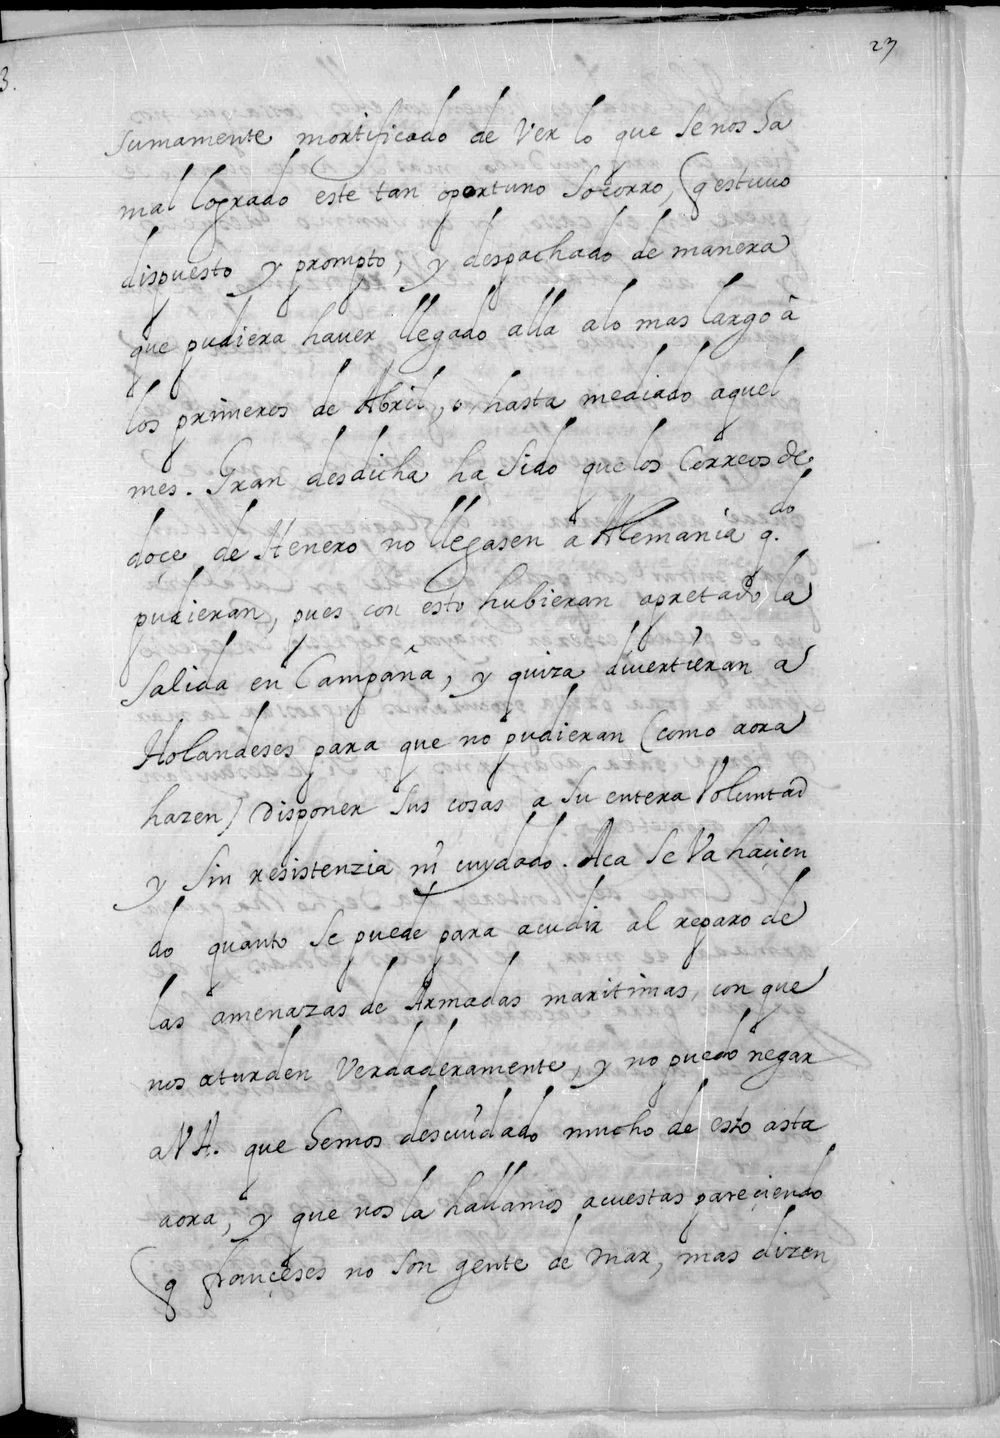 23
3.
sumamente mortificado de Ver lo que Se nos ha
mal logrado este tan oportuno Socorro, q estuuo
dispuesto y prompto, y despachado de manera
que pudiera hauer llegado alla alo mas largo à
los primeros de Abril, o, hasta mediado aquel
mes. Gran desdicha ha Sido que los Correos de
doce de Henero no llegasen a Alemania q.do
pudieran, pues con esto hubieran apretado la
Salida en Campaña, y quiza divertieran a
Holandeses para que no pudieran (como aora
hazen) Disponer sus cosas a Su entera Voluntad
y Sin resistenzia ni cuydado. Aca Se Va haçien
do quanto Se puede para acudir al reparo de
las amenazas de Armadas maritimas, con que
nos aturden Verdaderamente, y no puedo negar
a VA. que hemos descuidado mucho de esto asta
aora, y que nos la hallamos acuestas pareçiendo
q françeses no Son gente de mar, mas dizen